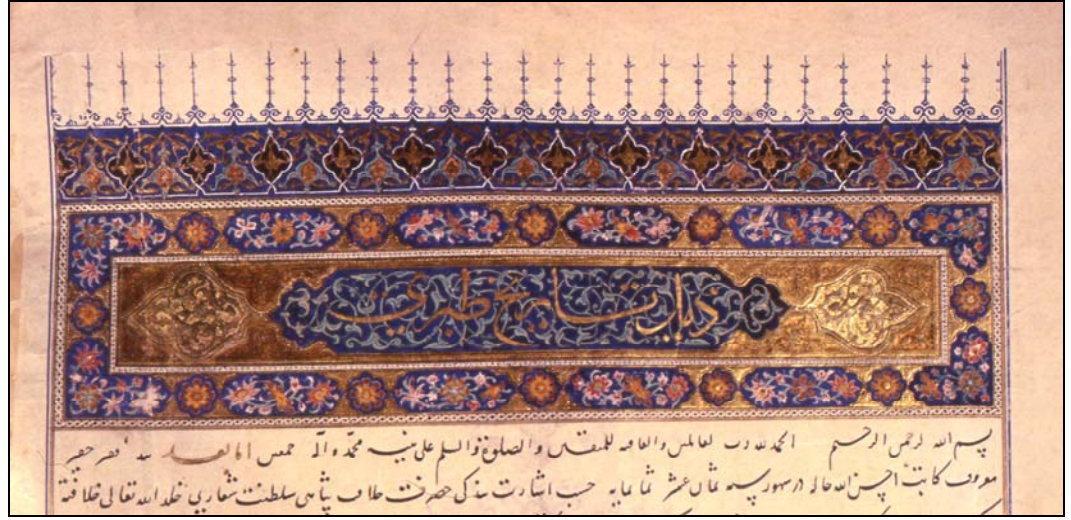 کتاب تاریخ طبری
بسم الله الرحمن الرحیم الحمد لله رب العالمین والعاقبه للمتقین والصلوة والسلم علی نبیه محمد وآله اجمعین اما بعد بنده فقیر حقیر
معروف کاتب احسن الله حاله در شهور سنه ثمان عشر ثمانمایه حسب اشارت بندکی حضرت خلافت پناهی سلطنت شعاری خلد الله تعالی خلافته